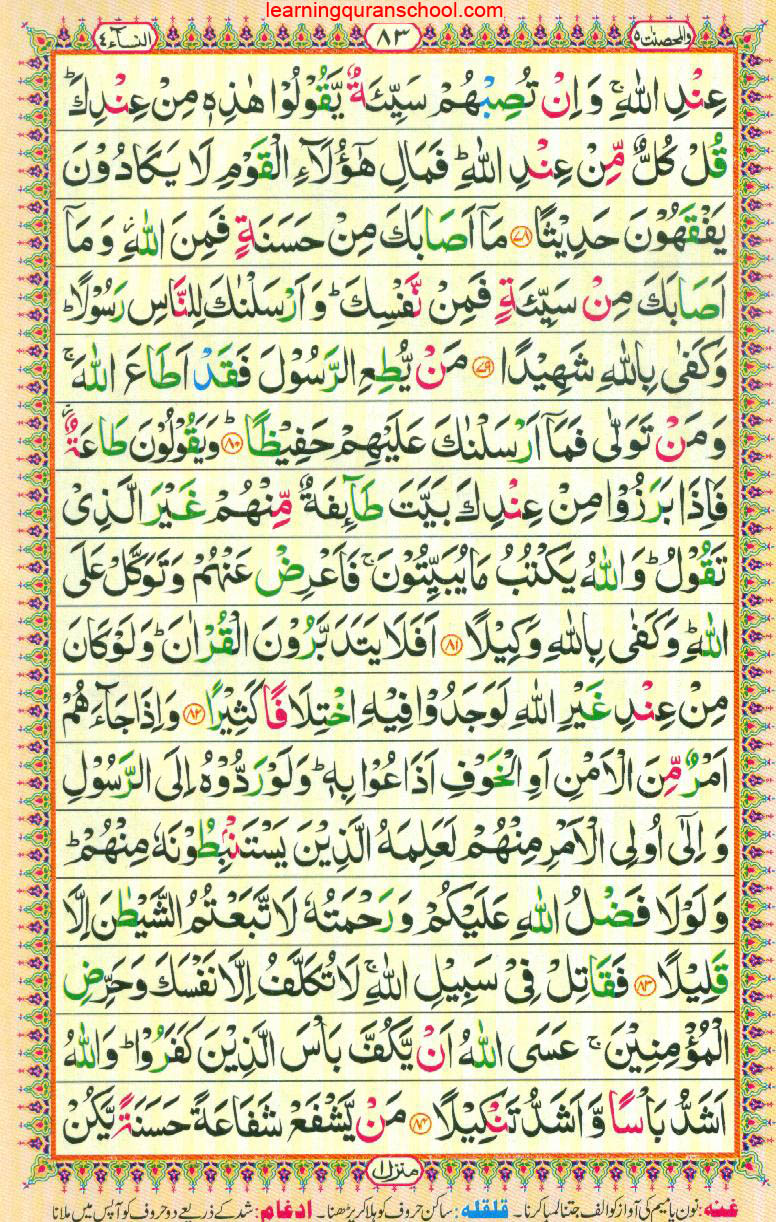 learningquranschool.com
والمحصنت ٥ ٨٣ النسآء ٤
عِنْدِ اللّٰهِ ۚ وَ اِنْ تُصِبْهُمْ سَیِّئَةٌ یَّقُوْلُوْا هٰذِهٖ مِنْ عِنْدِكَ ؕ
قُلْ كُلٌّ مِّنْ عِنْدِ اللّٰهِ ؕ فَمَالِ هٰۤؤُلَآءِ الْقَوْمِ لَا یَكَادُوْنَ
یَفْقَهُوْنَ حَدِیْثًا ۝۷۸ مَاۤ اَصَابَكَ مِنْ حَسَنَةٍ فَمِنَ اللّٰهِ ؗ وَ مَاۤ
اَصَابَكَ مِنْ سَیِّئَةٍ فَمِنْ نَّفْسِكَ ؕ وَ اَرْسَلْنٰكَ لِلنَّاسِ رَسُوْلًا ؕ
وَ كَفٰی بِاللّٰهِ شَهِیْدًا ۝۷۹ مَنْ یُّطِعِ الرَّسُوْلَ فَقَدْ اَطَاعَ اللّٰهَ ۚ
وَ مَنْ تَوَلّٰی فَمَاۤ اَرْسَلْنٰكَ عَلَیْهِمْ حَفِیْظًا ۝۸۰ؕ وَ یَقُوْلُوْنَ طَاعَةٌ ؗ
فَاِذَا بَرَزُوْا مِنْ عِنْدِكَ بَیَّتَ طَآىِٕفَةٌ مِّنْهُمْ غَیْرَ الَّذِیْ
تَقُوْلُ ؕ وَ اللّٰهُ یَكْتُبُ مَا یُبَیِّتُوْنَ ۚ فَاَعْرِضْ عَنْهُمْ وَ تَوَكَّلْ عَلَی
اللّٰهِ ؕ وَ كَفٰی بِاللّٰهِ وَكِیْلًا ۝۸۱ اَفَلَا یَتَدَبَّرُوْنَ الْقُرْاٰنَ ؕ وَ لَوْ كَانَ
مِنْ عِنْدِ غَیْرِ اللّٰهِ لَوَجَدُوْا فِیْهِ اخْتِلَافًا كَثِیْرًا ۝۸۲ وَ اِذَا جَآءَهُمْ
اَمْرٌ مِّنَ الْاَمْنِ اَوِ الْخَوْفِ اَذَاعُوْا بِهٖ ؕ وَ لَوْ رَدُّوْهُ اِلَی الرَّسُوْلِ
وَ اِلٰۤی اُولِی الْاَمْرِ مِنْهُمْ لَعَلِمَهُ الَّذِیْنَ یَسْتَنْۢبِطُوْنَهٗ مِنْهُمْ ؕ
وَ لَوْلَا فَضْلُ اللّٰهِ عَلَیْكُمْ وَ رَحْمَتُهٗ لَاتَّبَعْتُمُ الشَّیْطٰنَ اِلَّا
قَلِیْلًا ۝۸۳ فَقَاتِلْ فِیْ سَبِیْلِ اللّٰهِ ۚ لَا تُكَلَّفُ اِلَّا نَفْسَكَ وَ حَرِّضِ
الْمُؤْمِنِیْنَ ۚ عَسَی اللّٰهُ اَنْ یَّكُفَّ بَاْسَ الَّذِیْنَ كَفَرُوْا ؕ وَ اللّٰهُ
اَشَدُّ بَاْسًا وَّ اَشَدُّ تَنْكِیْلًا ۝۸۴ مَنْ یَّشْفَعْ شَفَاعَةً حَسَنَةً یَّكُنْ
منزل ١
غنہ: نون یا میم کی آواز کو الف جتنا لمبا کرنا۔ قلقلہ: ساکن حروف کو ہلا کر پڑھنا۔ ادغام: شد کے ذریعے دو حروف کو آپس میں ملانا